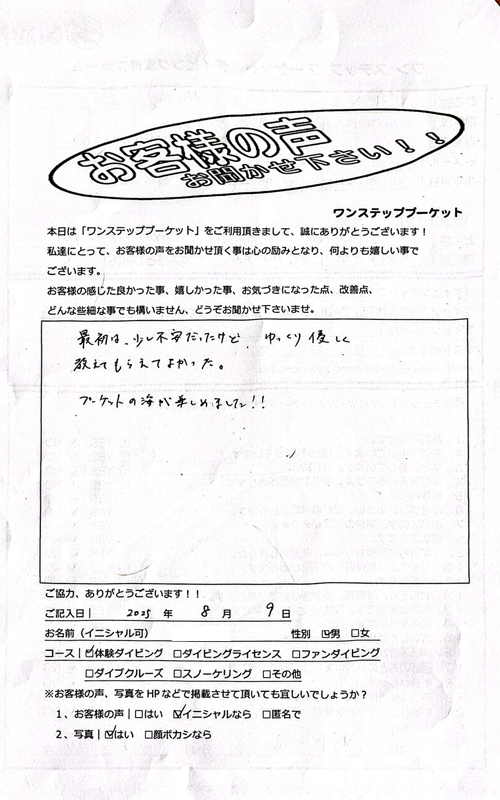 お客様の声
お聞かせ下さい！！
ワンステッププーケット
本日は「ワンステッププーケット」をご利用頂きまして、誠にありがとうございます！
私達にとって、お客様の声をお聞かせ頂く事は心の励みとなり、何よりも嬉しい事で
ございます。
お客様の感じた良かった事、嬉しかった事、お気づきになった点、改善点、
どんな些細な事でも構いません、どうぞお聞かせ下さいませ。
最初は、少し不安だったけど ゆっくり優しく
教えてもらえてよかった。
プーケットの海が楽しめました!!
ご協力、ありがとうございます！！
ご記入日| 2025 年 8 月 9 日
お名前（イニシャル可） 性別 ☑男 □女
コース| ☑体験ダイビング □ダイビングライセンス □ファンダイビング
□ダイブクルーズ □スノーケリング □その他
※お客様の声、写真をHPなどで掲載させて頂いても宜しいでしょうか？
1、お客様の声| □はい ☑イニシャルなら □匿名で
2、写真| ☑はい □顔ボカシなら